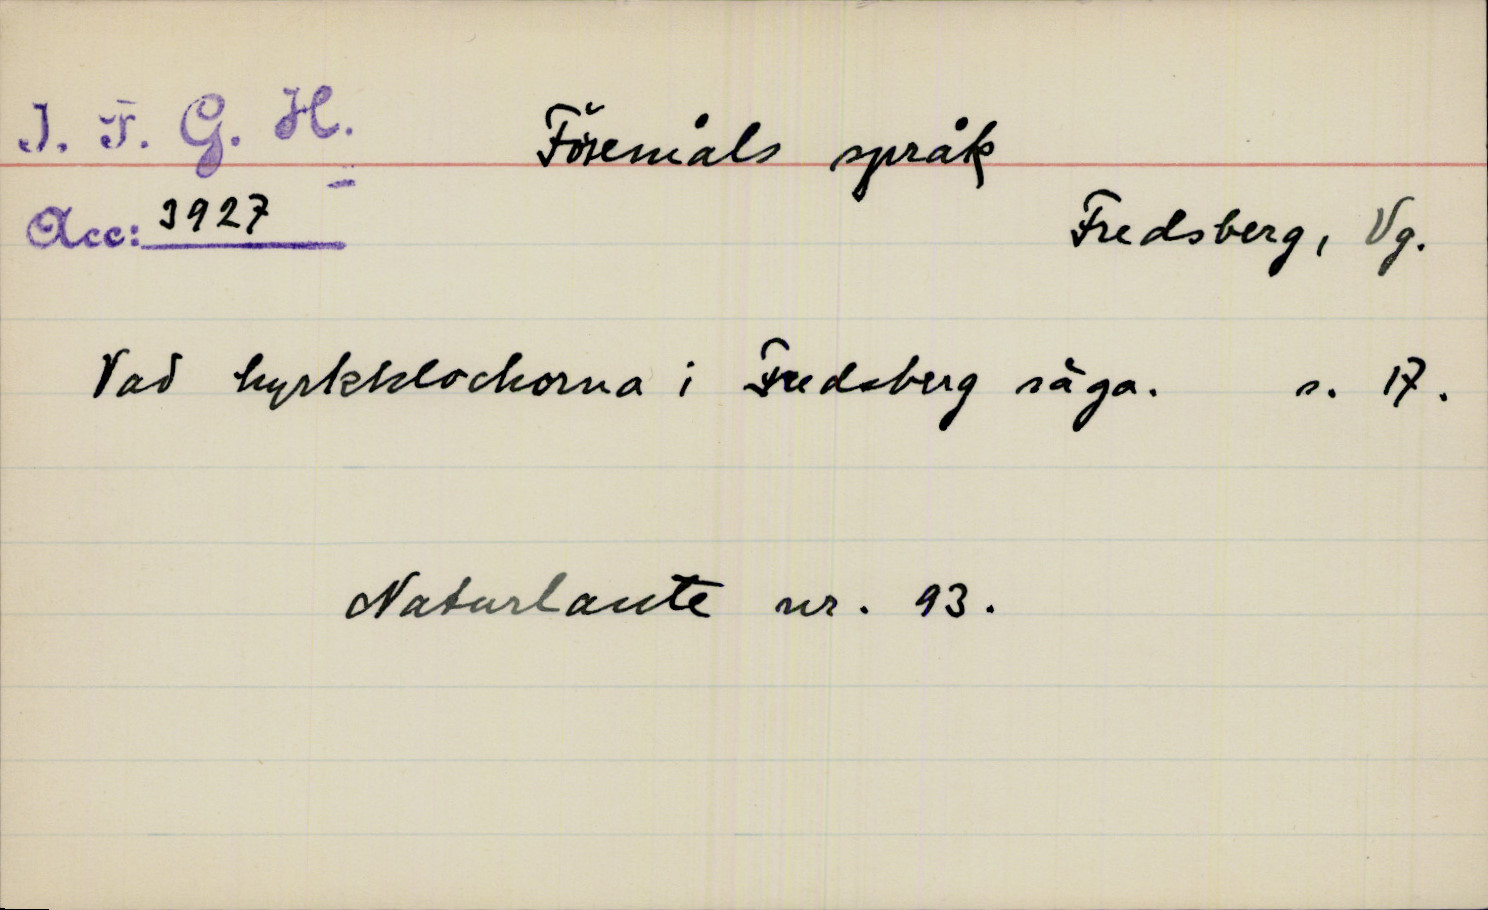 I. F. G. H.
Föremåls språk
Acc: 3927
Fredsberg, Vg.
Vad kyrkklockorna i Fredsberg säga. s. 17.
Naturlaute nr. 93.